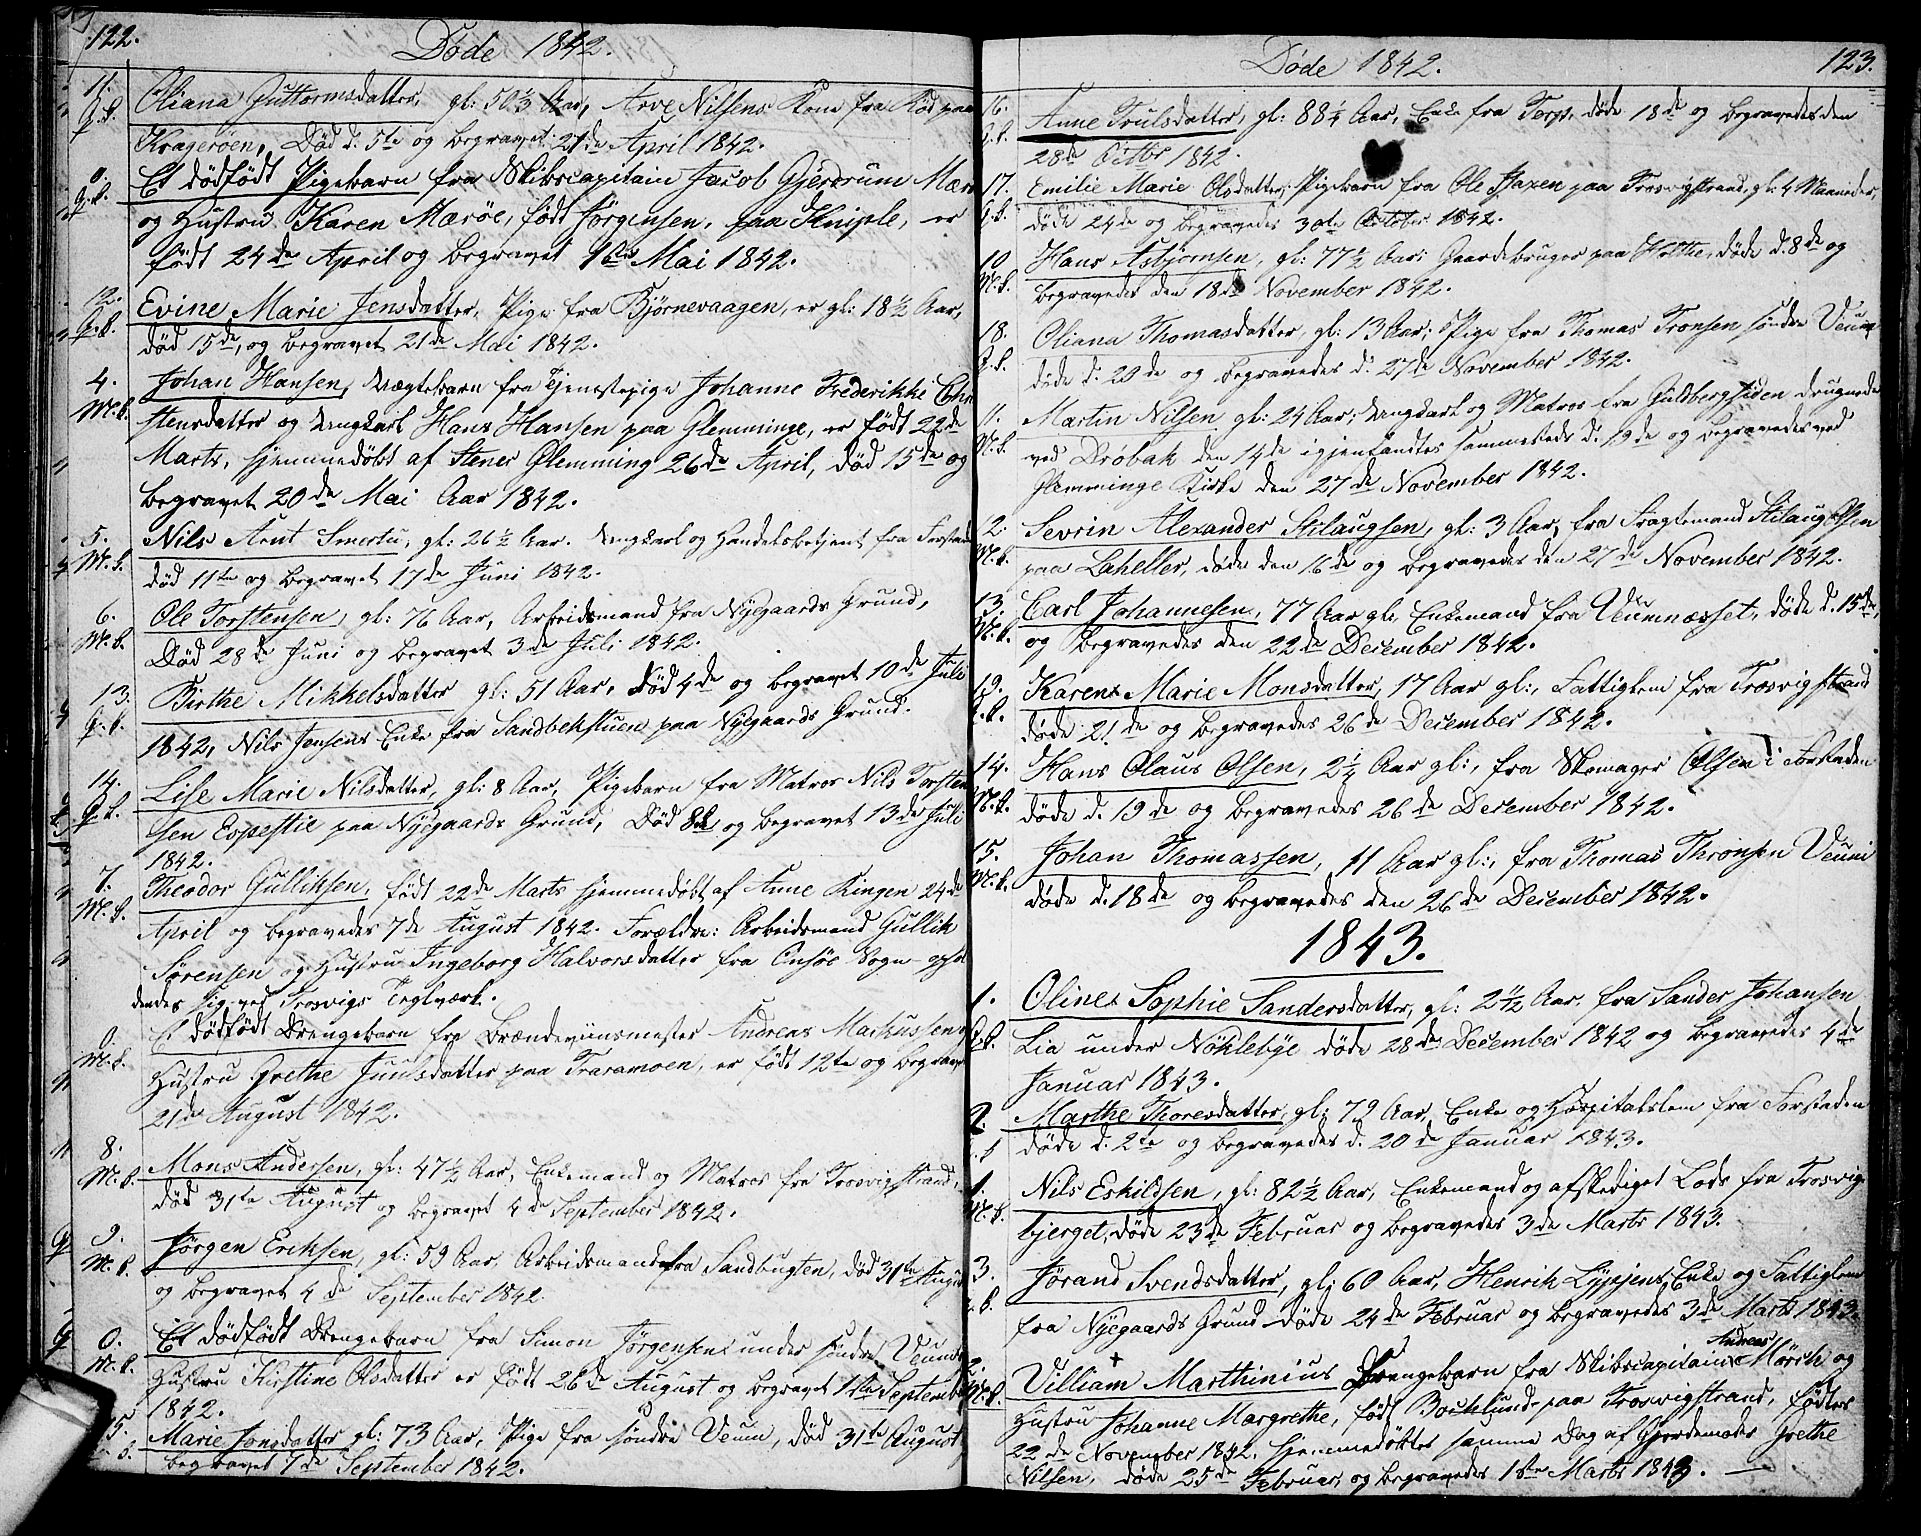 122.
Døde 1842.
11.
Q.k.
Oliana Guttormsdatter, gl: 50⅓ Aar, Arve Nilsens Kone fra Rød paa
Kragerøen, Død d. 5te og begravet 21de April 1842.
0.
Q.k.
Et dødfødt Pigebarn fra Skibscapitain Jacob Gjerdrum Mærø
og Hustru Karen Mærøe, født Jørgensen, paa Kniple, er
født 24de April og begravet 1ste Mai 1842.
12.
Q.k.
Evine Marie Jensdatter, Pige fra Bjørnevaagen, er gl: 18½ Aar,
død 15de, og begravet 21de Mai 1842.
4.
M.k.
Johan Hansen, Uægtebarn fra Tjenestepige Johanne Frederikke Chri
stensdatter og Ungkarl Hans Hansen paa Glemminge, er født 22de
Marts, hjemmedøbt af Stener Glemming 26de April, død 15de og
begravet 20de Mai Aar 1842.
5.
M.k.
Nils Arnt Smertu, gl: 26½ Aar. Ungkarl og Handelsbetjent fra Forstaden
død 11te og begravet 17de Juni 1842.
6.
M.k.
Ole Torstensen, gl: 76 Aar, Arbeidsmand fra Nyegaards Grund,
Død 28de Juni og begravet 3de Juli 1842.
13.
Q.k.
Birthe Mikkelsdatter gl: 51 Aar, død 4de og begravet 10de Juli
1842, Nils Jensens Enke fra Sandbekstuene paa Nyegaards Grund.
14.
Q.k.
Lise Marie Nilsdatter, gl: 8 Aar, Pigebarn fra Matros Nils Torsten
sen Evpestie paa Nyegaards Grund, Død 8de og begravet 13de Juli
1842.
7.
M.k.
Theodor Gulliksen, født 22de Marts hjemmedøbt af Anne Ringen 24de
April og begravedes 7de August 1842. Forældre: Arbeidsmand Gullik
Sørensen og Hustru Ingeborg Halvorsdatter fra Onsøe Sogn ophol
dendes sig ved Trosvigs Teglværk.
0.
M.k.
Et dødfødt Drengebarn fra Brændeviinsmester Andreas Markussen og
Hustru Grethe Juulsdatter paa Traramoen, er født 12te og begravet
21de August 1842.
8.
M.k.
Mons Andersen, gl: 47½ Aar, Enkemand og Matros fra Trosvigstrand,
død 31te August og begravet 4de September 1842.
9.
M.k.
Jørgen Eriksen, gl: 59 Aar, Arbeidsmand fra Sandbugten, død 31te August
og begravet 4de September 1842.
0.
M.k.
Et dødfødt Drengebarn fra Simon Jørgensen under søndre Veum
Hustru Kirstine Olsdatter er født 26de August og begravet 1ste September
1842.
15.
Marie Jonsdatter gl: 73 Aar, Pige fra søndre Veum, død 31te August
begravet 7de September 1842.
Døde 1842.
123.
16.
Q.k.
Anne Trulsdatter, gl: 88¼ Aar, Enke fra Torp, døde 18de og begravedes den
28de Octbr 1842.
17.
Q.k.
Emilie Marie Olsdatter, Pigebarn fra Ole Haxen paa Trosvigstrand, gl: 4 Maaneder,
døde 24de og begravedes 30te October 1842.
10
M.k.
Hans Asbjørnsen, gl: 77½ Aar: Gaardebruger paa Holthe, døde d. 8de og
begravedes den 18de November 1842.
18.
Q.k.
Oliana Thomasdatter, gl: 13 Aar, Pige fra Thomas Tronsen søndre Veum,
døde d. 20de og begravedes d. 27de November 1842.
11.
M.k.
Martin Nilsen gl: 24 Aar, Ungkarl og Matros fra Guldbergsiden druknede
ved Drøbak den 14de igjenfandtes sammesteds d. 19de og begravedes ved
Glemminge Kirke den 27de November 1842.
2.
M.k.
Sevrin Alexander Stilaugsen, gl: 3 Aar, fra Fragtemand Stilaug Olsen
paa Laheller, døde den 16de og begravedes den 27de November 1842.
13.
M.k.
Carl Johannesen, 77 Aar gl, Enkemand fra Veumnæsset, døde d. 15de,
og begravedes den 22de December 1842.
19.
Q.k.
Karen Marie Monsdatter, 17 Aar gl:, Fattiglem fra Trosvigstrand
døde 21de og begravedes 26de December 1842.
14.
M.k.
Hans Olaus Olsen, 2¼ Aar gl:, fra Skomager Olsen i Forstaden
døde d. 19de og begravedes 26de December 1842.
15.
M.k.
Johan Thomassen, 11 Aar gl:, fra Thomas Thronsen Veum
døde d. 18de og begravedes den 26de December 1842.
1843.
1.
Q.k.
Olines Sophie Sandersdatter, gl: 2½ Aar, fra Sander Johansen
Lia under Nøklebye døde 28de December 1842 og begravedes 4de
Januar 1843.
2.
Marthe Thoresdatter, gl: 79 Aar, Enke og Hospitalslem fra Forstaden
døde d. 2te og begravedes d. 20de Januar 1843.
1.
M.k.
Nils Eskildsen, gl: 82½ Aar, Enkemand og afskediget Lods fra Trosvig
bjerget, døde 23de Februar og begravedes 3de Marts 1843.
3.
Jørand Svendsdatter, gl: 60 Aar, Henrik Lyppens Enke og Fattiglem
fra Nyegaards Grund døde 24de Februar og begravedes 3de Marts 1843.
2.
M.k.
Andreas
Villiam Marthinius Drengebarn fra Skibscapitain Mørch og
Hustru Johanne Margrethe, født Bocklund paa Trosvigstrand, fødtes
22de November 1842, hjemmedøbtes samme Dag af Gjordemoder Grethe
Nilsen, døde 25de Februar, og begravedes 1ste Marts 1843.